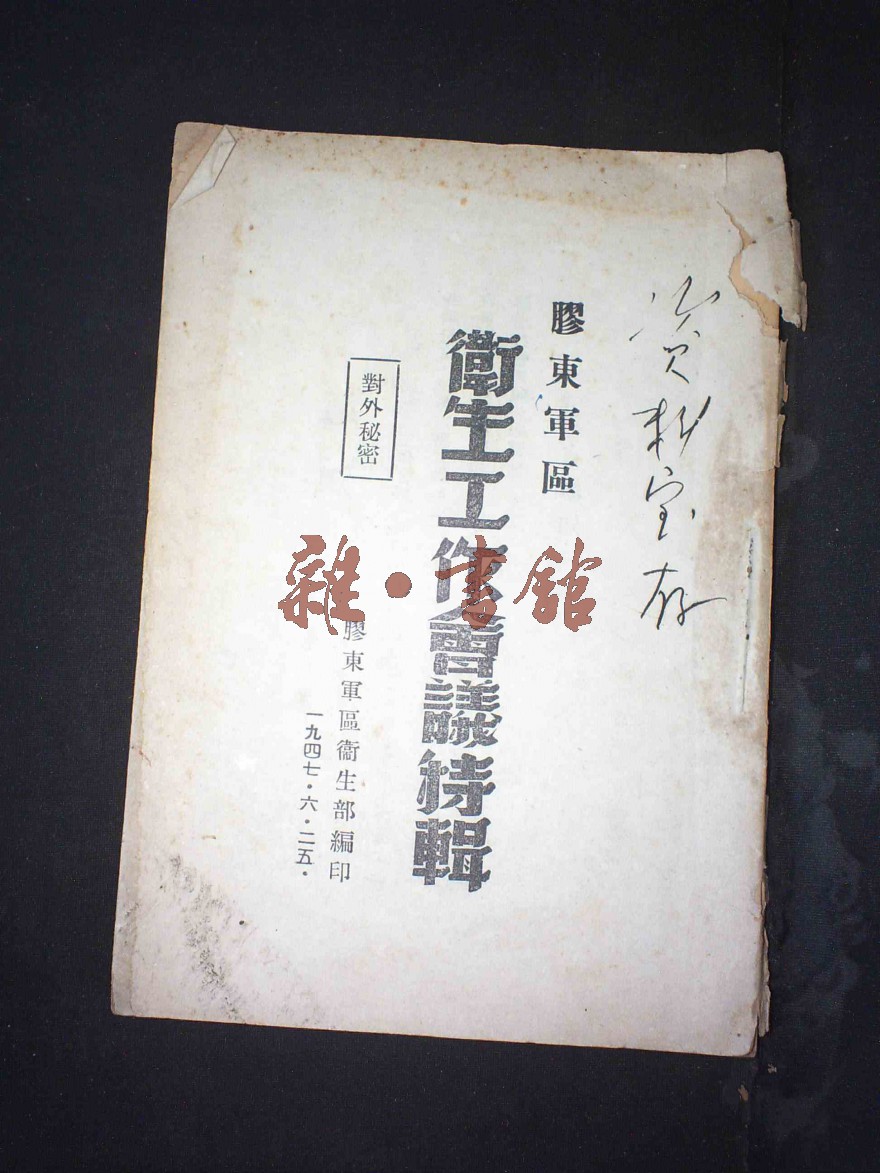 資料室存
膠東軍區
衛生工作會議特輯
對外秘密
膠東軍區衛生部編印
一九四七·六·二五·
雜·書館